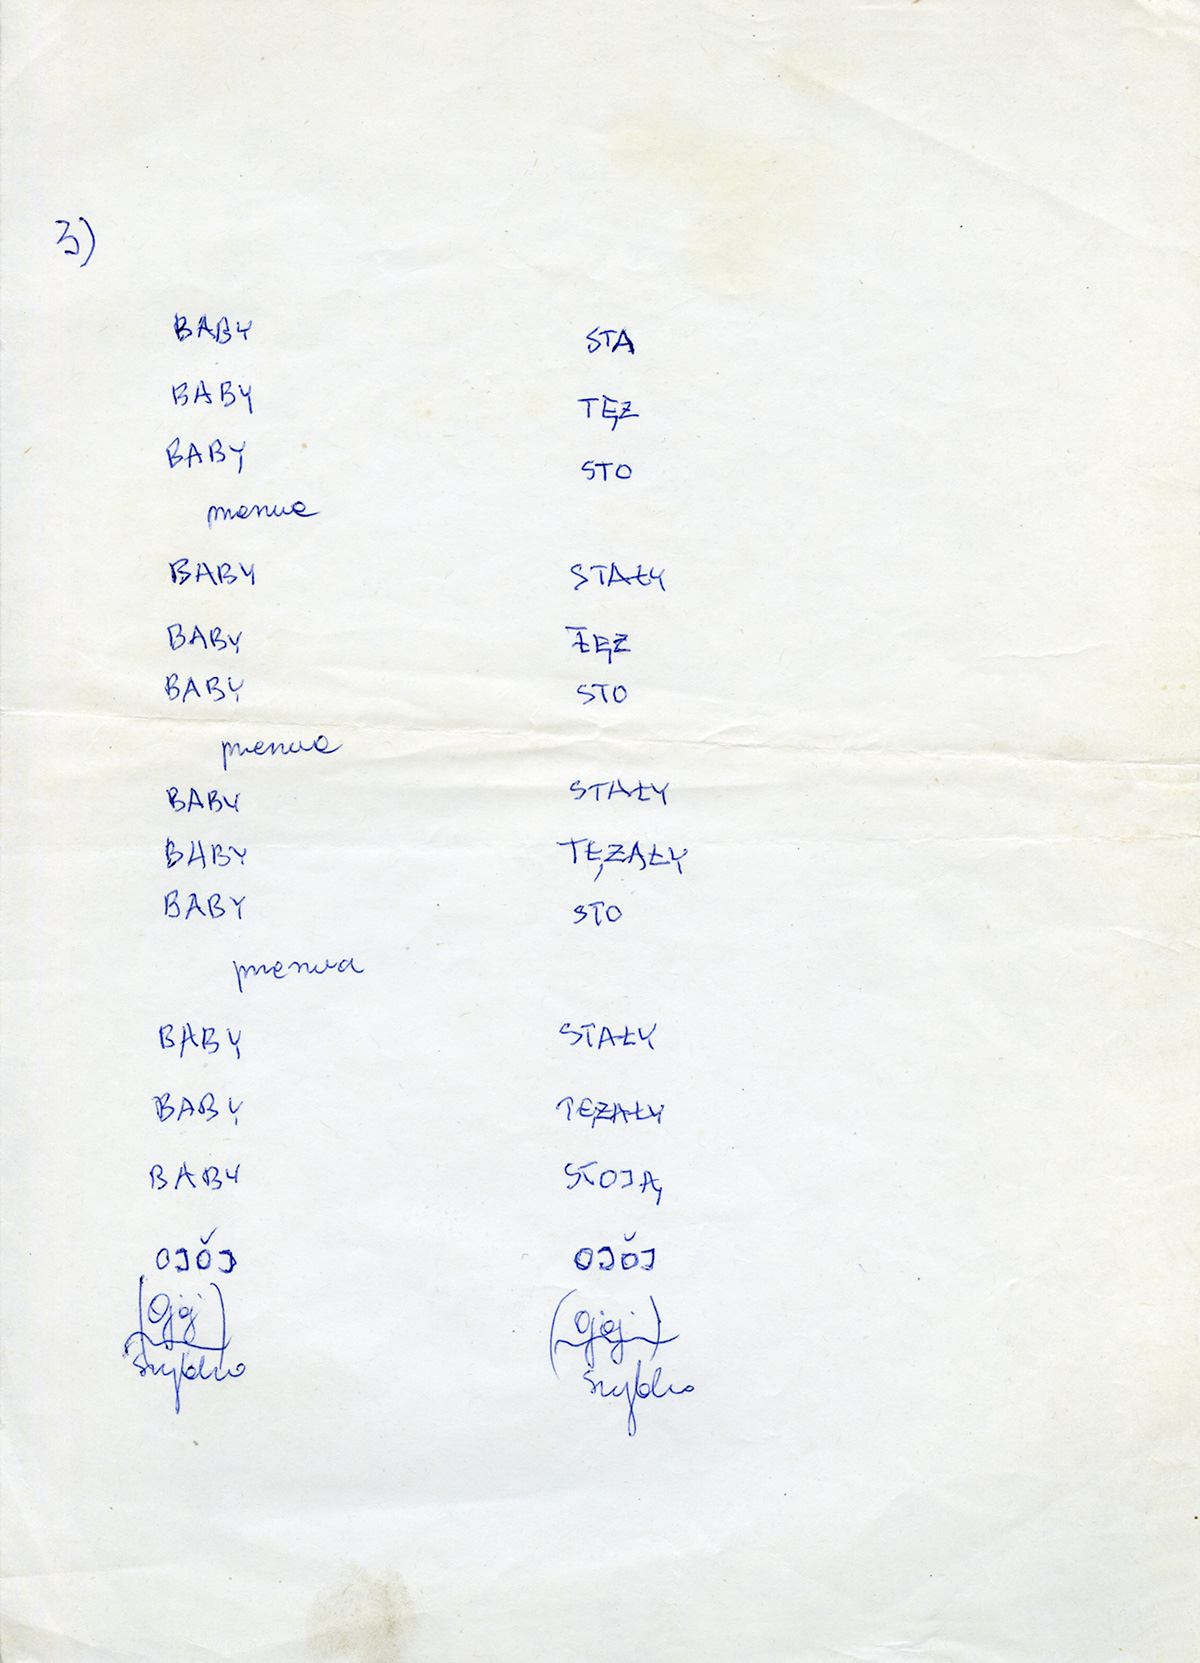 3)
BABY STA
BABY TĘŻ
BABY STO
przerwa
BABY STAŁY
BABY TĘŻ
BABY STO
przerwa
BABY STAŁY
BABY TĘŻAŁY
BABY STO
przerwa
BABY STAŁY
BABY TĘŻAŁY
BABY STOJĄ
OJŎJ OJŎJ
(Ojoj) (Ojoj)
szybko szybko